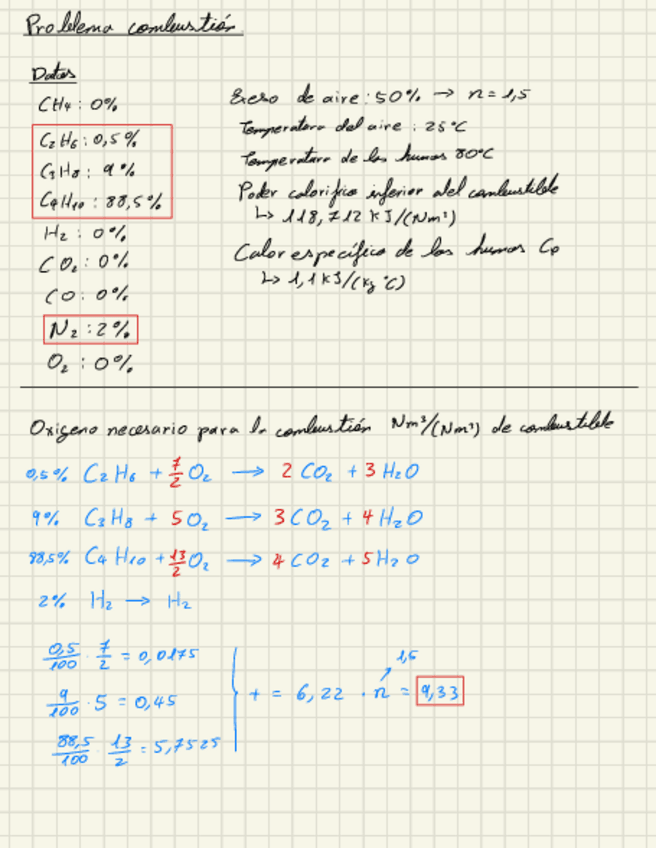 Problema combustión
Datos
CH4: 0%
C2H6: 0,5%
C3H8: 9%
C4H10: 88,5%
H2: 0%
CO2: 0%
CO: 0%
N2: 2%
O2: 0%
Exceso de aire: 50% → n = 1,5
Temperatura del aire: 25°C
Temperatura de los humos 80°C
Poder calorífico inferior del combustible
↳ 118,712 kJ/(Nm³)
Calor específico de los humos Cp
↳ 1,1 kJ/(kg °C)
Oxigeno necesario para la combustión Nm³/(Nm³) de combustible
0,5% C2H6 + 7/2 O2 → 2 CO2 + 3 H2O
9% C3H8 + 5O2 → 3CO2 + 4 H2O
88,5% C4H10 + 13/2 O2 → 4 CO2 + 5 H2O
2% H2 → H2
0,5/100 · 7/2 = 0,0175
9/100 · 5 = 0,45
88,5/100 · 13/2 = 5,7525
1,5
+ = 6,22 · n = 9,33